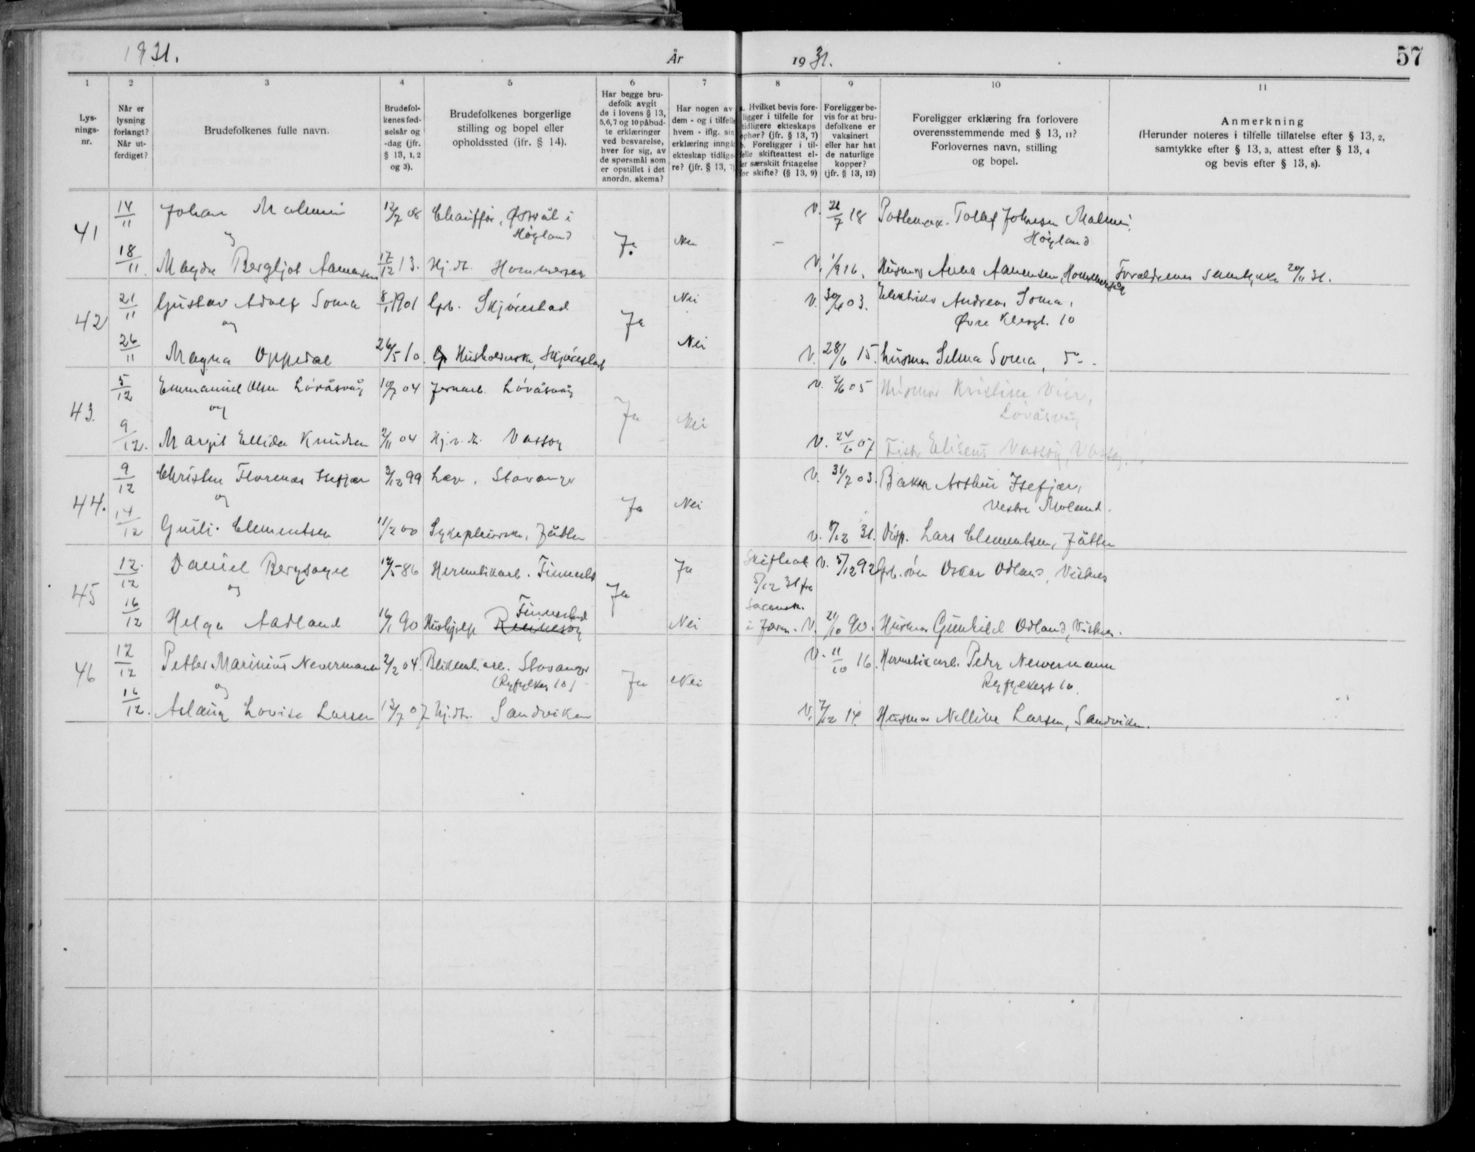 1931.
År
1931.
57
1
2
3
4
5
6
7
8
9
10
11
Lys-
nings-
nr.
Når er
lysning
forlangt?
Når ut-
ferdiget?
Brudefolkenes fulle navn.
Brudefol-
kenes fød-
selsår og
-dag (jfr.
§ 13, 1, 2
og 3).
Brudefolkenes borgerlige
stilling og bopel eller
opholdssted (jfr. § 14).
Har begge bru-
defolk avgit
de i lovens § 13,
5,6,7 og 10 påbud-
te erklæringer
ved besvarelse,
hver for sig, av
de spørsmål som
er opstillet i det
anordn. skema?
Har nogen av
dem - og i tilfelle
hvem - iflg. sin
erklæring inngå
ekteskap tidlige
re? (jfr. § 13, 7)
a. Hvilket bevis fore-
ligger i tilfelle for
tidligere ekteskaps
ophør? (jfr. § 13, 7)
b. Foreligger i til-
felle skifteattest el-
ler særskilt fritagelse
for skifte? (§ 13, 9)
Foreligger be-
vis for at bru-
defolkene er
vaksinert
eller har hat
de naturlige
kopper?
(jfr. § 13, 12)
Foreligger erklæring fra forlovere
overensstemmende med § 13, 11?
Forlovernes navn, stilling
og bopel.
Anmerkning
(Herunder noteres i tilfelle tillatelse efter § 13, 2,
samtykke efter § 13, 3, attest efter § 13, 4
og bevis efter § 13, 8).
41
14/11
Johan Malmin
12/7 08
Chauffør,
Høgland
V. 21/7 18
Tollef Johnsen Malmin,
Høgland
og
Ja.
Nei
-
18/11.
Magda Bergljot Aamensen
17/12 13.
Hj. dt. Hommersåk
V. 1/9 16.
Husmor Anna Aanensen, Hommersåk
Foreldrenes samtykke 20/11 31.
42
21/11
Gustav Adolf Soma
8/1 1901
Grb. Skjørestad
Nei
V. 30/6 03.
Andreas Soma,
Øvre Kleivgt. 10
og
Ja
26/11
Magna Oppedal
26/5 10.
Husholderske, Skjørestad
Nei
V. 28/6 15.
Husmor Selma Soma, do -
43.
5/12
Emmanuel Olsen Løvåsvåg
10/7 04
Jernarb. Løvåsvåg
V. 2/6 05
Husmor Kristine Vier,
Løvåsvåg
og
Ja
Nei
9/12.
Margit Ellida Knudsen
2/11 04
Hj. v. dt. Vassøy
V. 24/6 07
Fisk. Eliseus Vassøy, Vassøy.
44.
9/12
Christen Florenas Isefjær
3/12 99
Lær. Stavanger
V. 31/7 03.
Baker Arthur Isefjær,
Vestre Moland.
og
Ja
Nei
14/12
Guri Clementsen
11/2 00
Sykepleierske, Jåtten
V. 9/12 31.
Disp. Lars Clementsen, Jåtten
45
12/12
Daniel Bergsagel
14/5 86
Hermetikarb. Finnestad
Ja
Skifteat.
5/12 31 fra
Sorensk.
i Jæren.
V. 5/12 92
Grb. søn Oskar Odland, Viknes
og
Ja
16/12
Helga Aadland
16/1 90
Hushjelp
Finnestad
Nei
V. 21/10 90.
Husmor Gunhild Odland, Viknes.
46
12/12
Petter Marinius Nevermann
2/2 04
Blikkenl. arb. Stavanger
(Ryfylkegt 10)
V. 11/10 16.
Hermetikarb. Peder Nevermann
Ryfylkegt 10.
og
Ja
Nei
16/12.
Aslaug Lovise Larsen
12/7 07
Hj. dt. Sandviken
V. 7/12 14.
Husmor Nelline Larsen, Sandviken.